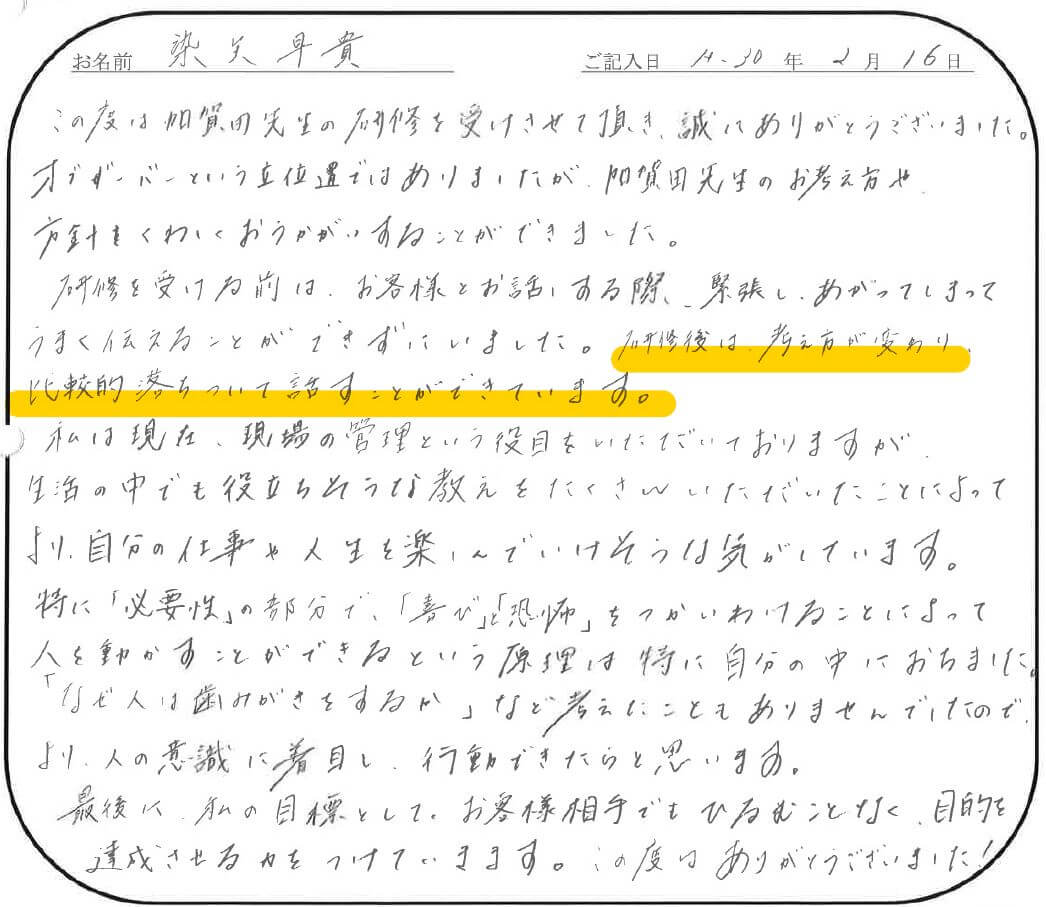 お名前 染矢早貴 ご記入日 H.30年2月16日
この度は加賀田先生の研修を受けさせて頂き、誠にありがとうございました。
オブザーバーという立位置ではありましたが、加賀田先生のお考え方や、
方針をくわしくおうかがいすることができました。
研修を受ける前は、お客様とお話しする際、緊張し、あがってしまって
うまく伝えることができずにいました。研修後は、考え方が変わり、
比較的落ちついて話すことができています。
私は現在、現場の管理という役目をいただいておりますが、
生活の中でも役立ちそうな教えをたくさんいただいたことによって
より、自分の仕事や人生を楽しんでいけそうな気がしています。
特に「必要性」の部分で、「喜び」と「恐怖」をつかいわけることによって
人を動かすことができるという原理は特に自分の中におちました。
「なぜ人は歯みがきをするか」など考えたこともありませんでしたので、
より、人の意識に着目し、行動できたらと思います。
最後に、私の目標として、お客様相手でもひるむことなく、目的を
達成させる力をつけていきます。この度はありがとうございました!